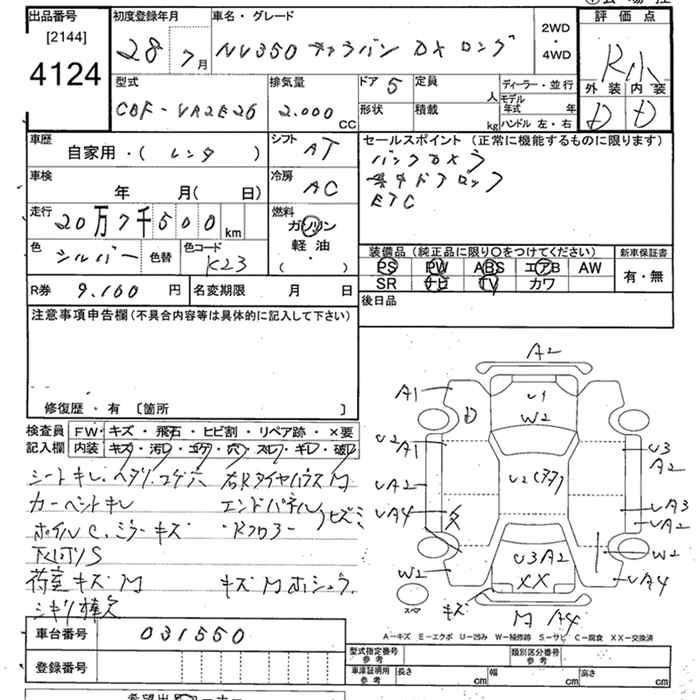 出品番号
[2144]
4124
初度登録年月
28年 7月
車名・グレード
NV350 キャラバン DX ロング
2WD
・
4WD
評価点
R
外装 内装
D D
型式
CBF-VR2E26
排気量
2.000 CC
ドア 5
形状
定員 人
積載 kg
ディーラー・並行
モデル年式 年
ハンドル 左・右
車歴
自家用・( レンタ )
シフト
AT
セールスポイント (正常に機能するものに限ります)
バックカメラ
集中ドアロック
ETC
車検
年 月( 日)
冷房
AC
走行
20万7千500km
燃料
ガソリン
軽油
( ・ )
色
シルバー
色替
色コード
K23
装備品 (純正品に限り〇をつけてください)
PS PW ABS エアB AW
SR ナビ TV カワ
新車保証書
有・無
R券 9.160 円
名変期限 月 日
後日品
注意事項申告欄(不具合内容等は具体的に記入して下さい)
修復歴・有 〔箇所 〕
検査員記入欄
FW・キズ・飛石・ヒビ割・リペア跡・×要
内装・キズ・汚レ・コゲ・穴・スレ・キレ・破レ
シートキレ・ヘタリ・コゲ穴 右Rタイヤハウス M
カーペットキレ エンドパネル
ホイルC.ミラーキズ ・Rフロアー ヒズミ
下回りS
荷室キズM キズMホシュウ
シキリ棒欠
A2
A1
U1
W2
U2
A1
U2
U3
A2
UA2
UA3
UA2
UA4
W2
U3A2
XX
W2
UA4
スペア
キズ
M A4
A-キズ E-エクボ U-凹み W-補修跡 S-サビ C-腐食 XX-交換済
車台番号 031550
登録番号
型式指定番号
参考
類別区分番号
参考
車庫証明用
参考
長さ cm
幅 cm
高さ cm